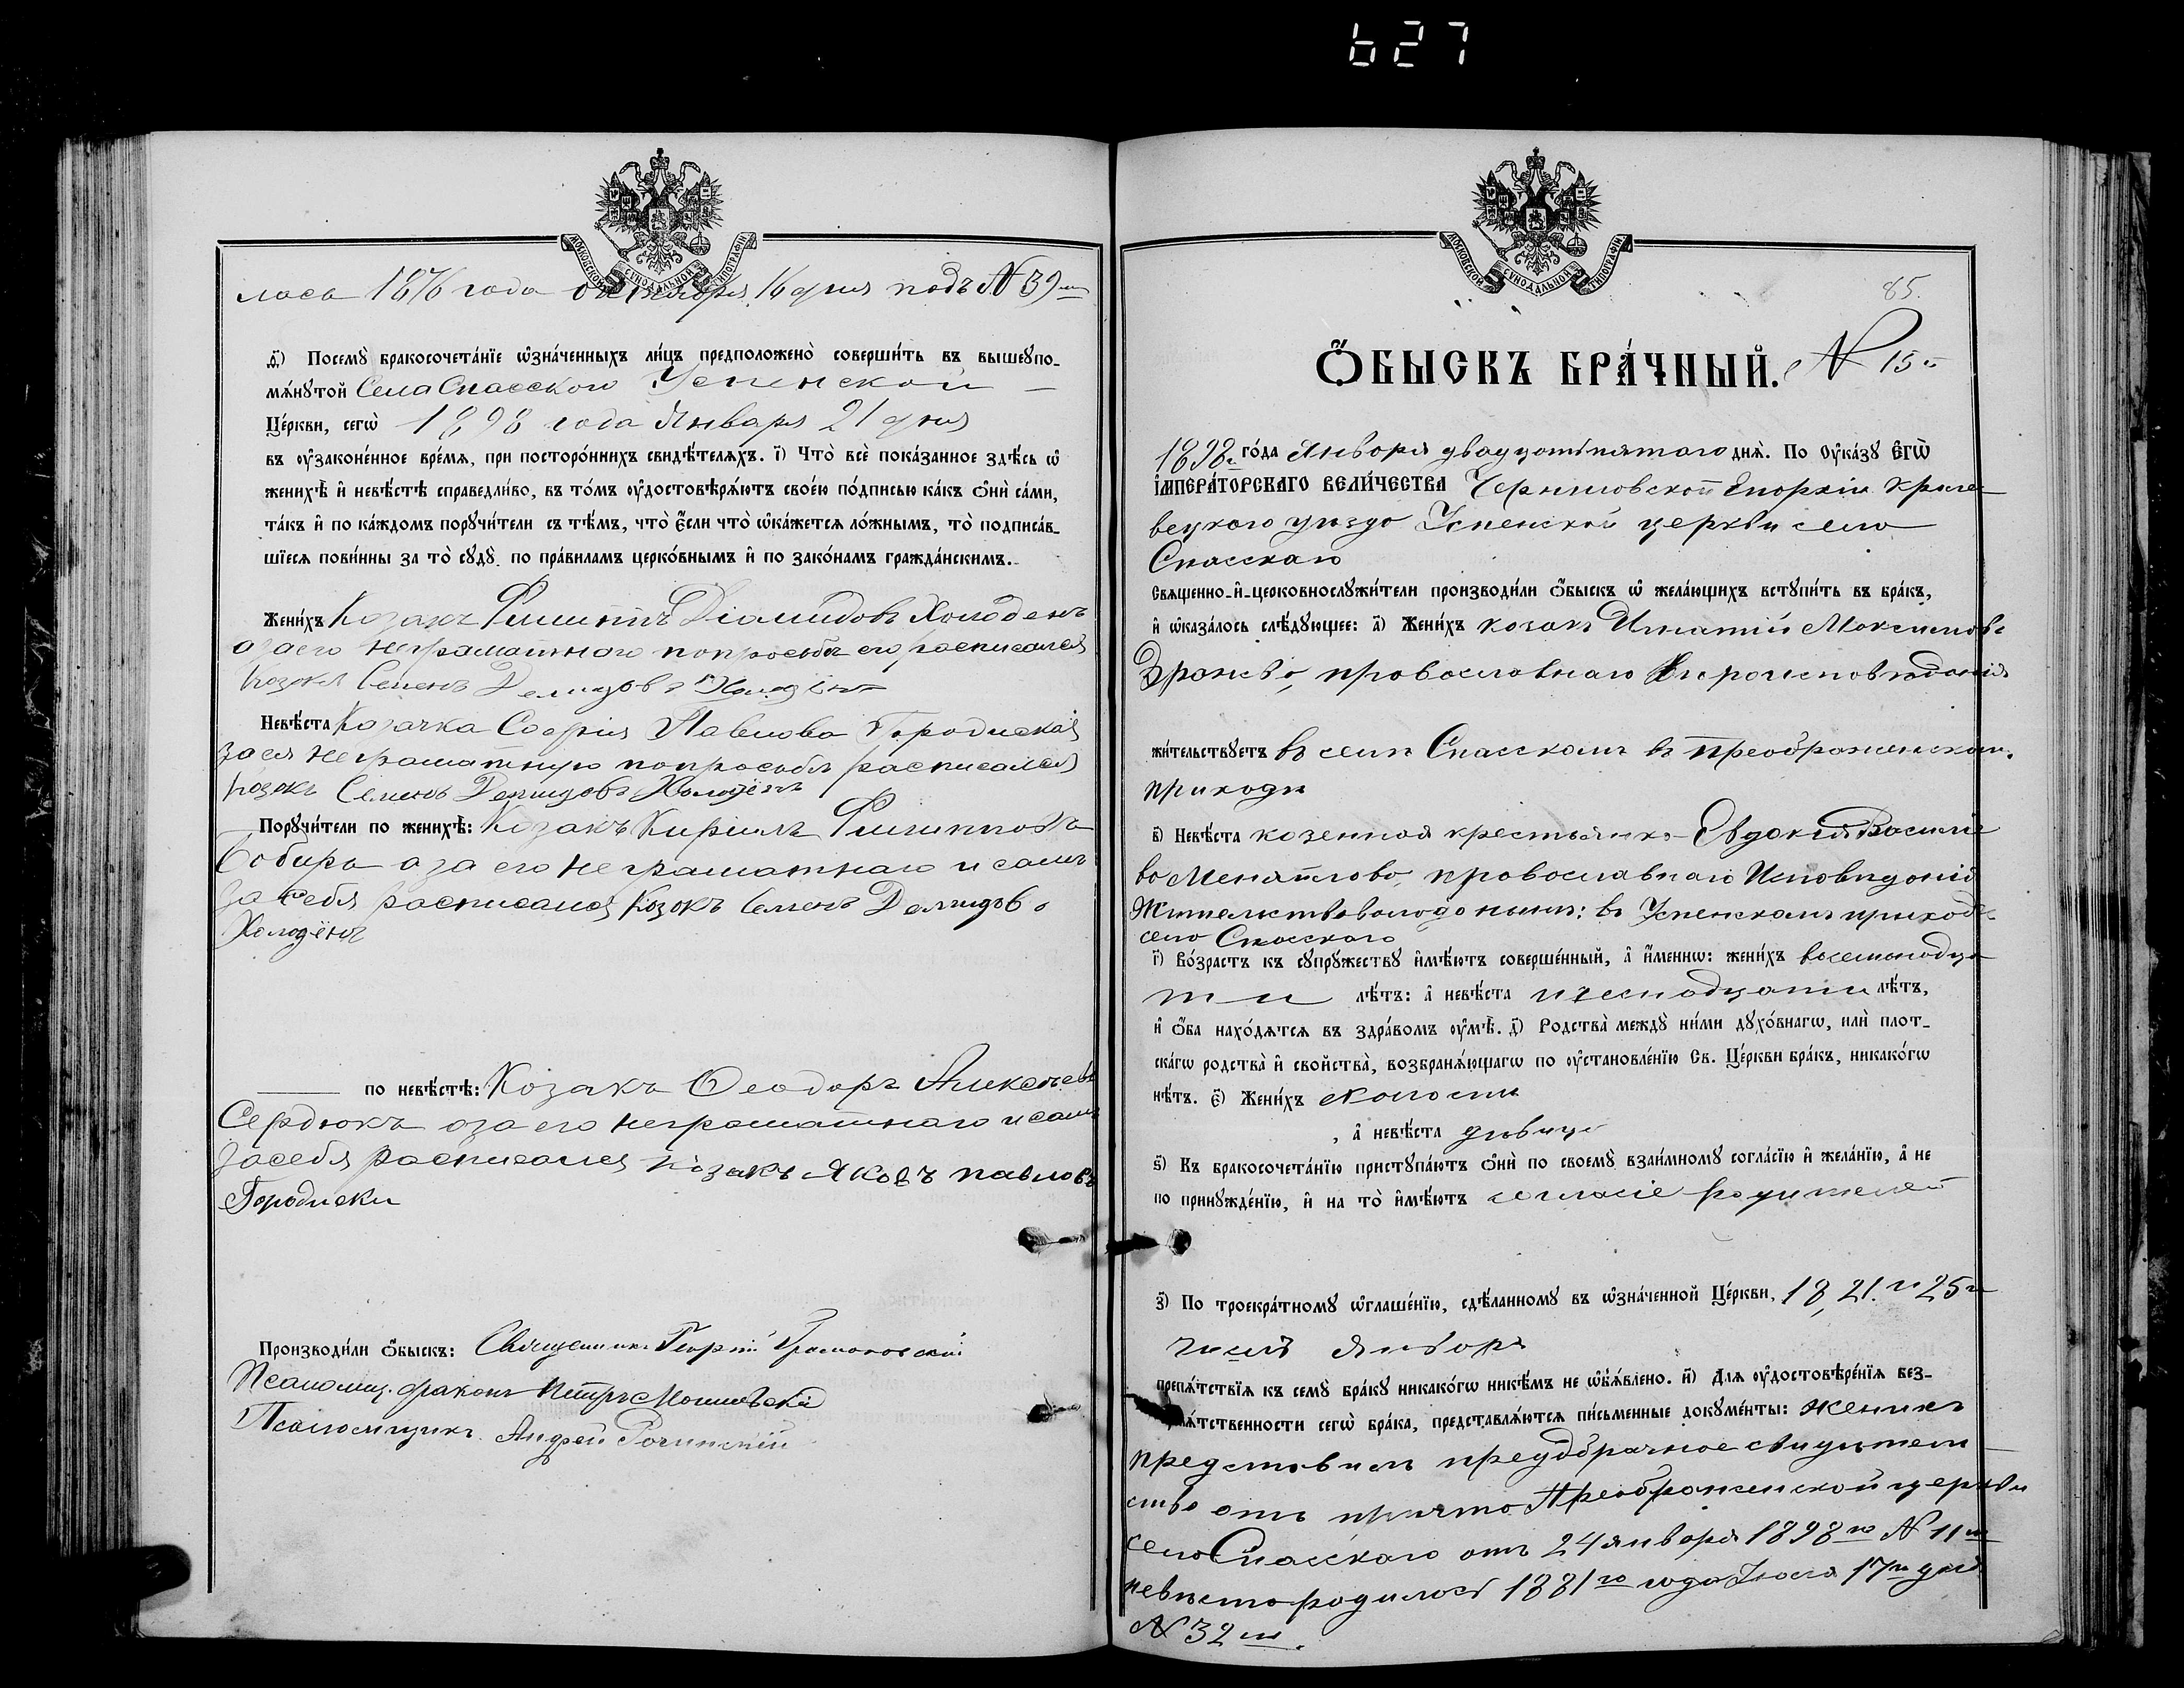 627
МОСКОВСКОЙ СѴНОДАЛЬНОЙ ТИПОГРАФІИ
лась 1876 года октября 16 дня подъ № 39мъ
д҃і) Посемꙋ̀ бракосочета́нїе ѡ҆зна́ченныхъ ли́цъ предположено̀ соверши́ть въ вышеꙋпо-
мѧ́нꙋтой Села Спасскаго Успенской
Це́ркви, сегѡ̀ 1898 года Января 21 дня
въ ᲂу҆законе́нное вре́мѧ, при посторо́ннихъ свидѣ́телѧхъ. і҃) Что̀ всѐ пока́занное здѣ́сь ѡ҆
женихѣ̀ и҆ невѣ́стѣ справедли́во, въ то́мъ ᲂу҆достовѣрѧ́ютъ свое́ю по́дписью ка́къ ѻ҆нѝ са́ми,
та́къ и҆ по ка́ждомъ порꙋчи́тели съ тѣ́мъ, что̀ є҆́сли что̀ ѡ҆ка́жетсѧ ло́жнымъ, то̀ подписа́в-
шїесѧ пови́нны за то̀ сꙋдꙋ̀ по пра́виламъ церко́внымъ и҆ по зако́намъ гражда́нскимъ.
Жени́хъ Козакъ Филиппъ Діамидовъ Холоденъ
а за его неграматнаго по просьбѣ его росписался
Козакъ Семенъ Демидовъ Холодёнъ
Невѣ́ста Козачка Софія Павлова Городиская
за ея неграматную по просьбѣ расписался
Козакъ Семенъ Демидовъ Холодёнъ
Порꙋчи́тели по женихѣ̀: Козакъ Кирилъ Филипповъ
Бобиръ а за его неграматнаго и самъ
за себя расписался Козакъ Семенъ Демидовъ
Холодёнъ
по невѣ́стѣ: Козакъ Феодоръ Алексѣевъ
Сердюкъ а за его неграматнаго и самъ
за себя расписался Козакъ Яковъ Павловъ
Городиски
Производи́ли ѻ҆́быскъ: Священникъ Георгій Грамоновскій
Псаломщ. діаконъ Петръ
Псаломщикъ Андрей
85.
Ѻ҆́БЫСКЪ БРА́ЧНЫЙ. № 15й
1898г го́да Января двадцать пятаго днѧ̀. По ᲂу҆ка́зꙋ Є҆ГѠ̀
І҆МПЕРА́ТОРСКАГО ВЕЛИ́ЧЕСТВА Черниговской Епархіи Кроле-
вецкаго уѣзда Успенской церкви села
Спасскаго
свѧщенно-и҆-церковнослꙋжи́тели производи́ли ѻ҆́быскъ ѡ҆ жела́ющихъ встꙋпи́ть въ бра́къ,
и҆ ѡ҆каза́лось слѣ́дꙋющее: а҃) Жени́хъ козакъ Игнатій Максимовъ
православнаго вѣроисповѣданія
жи́тельствꙋетъ въ селѣ Спасскомъ въ Преображенском.
приходѣ
в҃) Невѣ́ста казенная крестьянка Евдокія Василіе
ва православнаго Исповѣданія
Жительствовала до нынѣ: въ Успенскомъ приходѣ
села Спасскаго
г҃) Во́зрастъ къ сꙋпрꙋ́жествꙋ и҆мѣ́ютъ соверше́нный, а҆ и҆́меннѡ: жени́хъ восемнадца
ти лѣ́тъ: а҆ невѣ́ста шеснадцати лѣ́тъ,
и҆ ѻ҆́ба нахо́дѧтсѧ въ здра́вомъ ᲂу҆мѣ̀. д҃) Родства̀ междꙋ̀ ни́ми дꙋхо́внагѡ, илѝ плот-
ска́гѡ родства̀ и҆ сво́йства, возбранѧ́ющагѡ по ᲂу҆становле́нїю Св. Це́ркви бра́къ, никако́гѡ
нѣ́тъ. є҃) Жени́хъ холостъ
, а҆ невѣ́ста дѣвица
ѕ҃) Къ бракосочета́нїю пристꙋпа́ютъ ѻ҆нѝ по своемꙋ̀ взаи́мномꙋ согла́сїю и҆ жела́нїю, а҆ не
по принꙋжде́нїю, и҆ на то̀ и҆мѣ́ютъ согласіе родителей
з҃) По троекра́тномꙋ ѡ҆глаше́нїю, сдѣ́ланномꙋ въ ѡ҆зна́ченной Це́ркви, 18, 21. и 25го
числъ Января
препѧ́тствїѧ къ семꙋ̀ бра́кꙋ никако́гѡ никѣ́мъ не ѡ҆б̾ѧ́влено. и҃) Длѧ ᲂу҆достовѣре́нїѧ без-
препѧ́тственности сегѡ̀ бра́ка, представлѧ́ютсѧ пи́сьменные докꙋме́нты: женихъ
представилъ предбрачное свидѣтель-
ство отъ причта Преображенской церкви
села Спасскаго отъ 24 января 1898го № 11мъ
невѣста родилась 1881го года Іюля 17го дня
№ 32мъ.